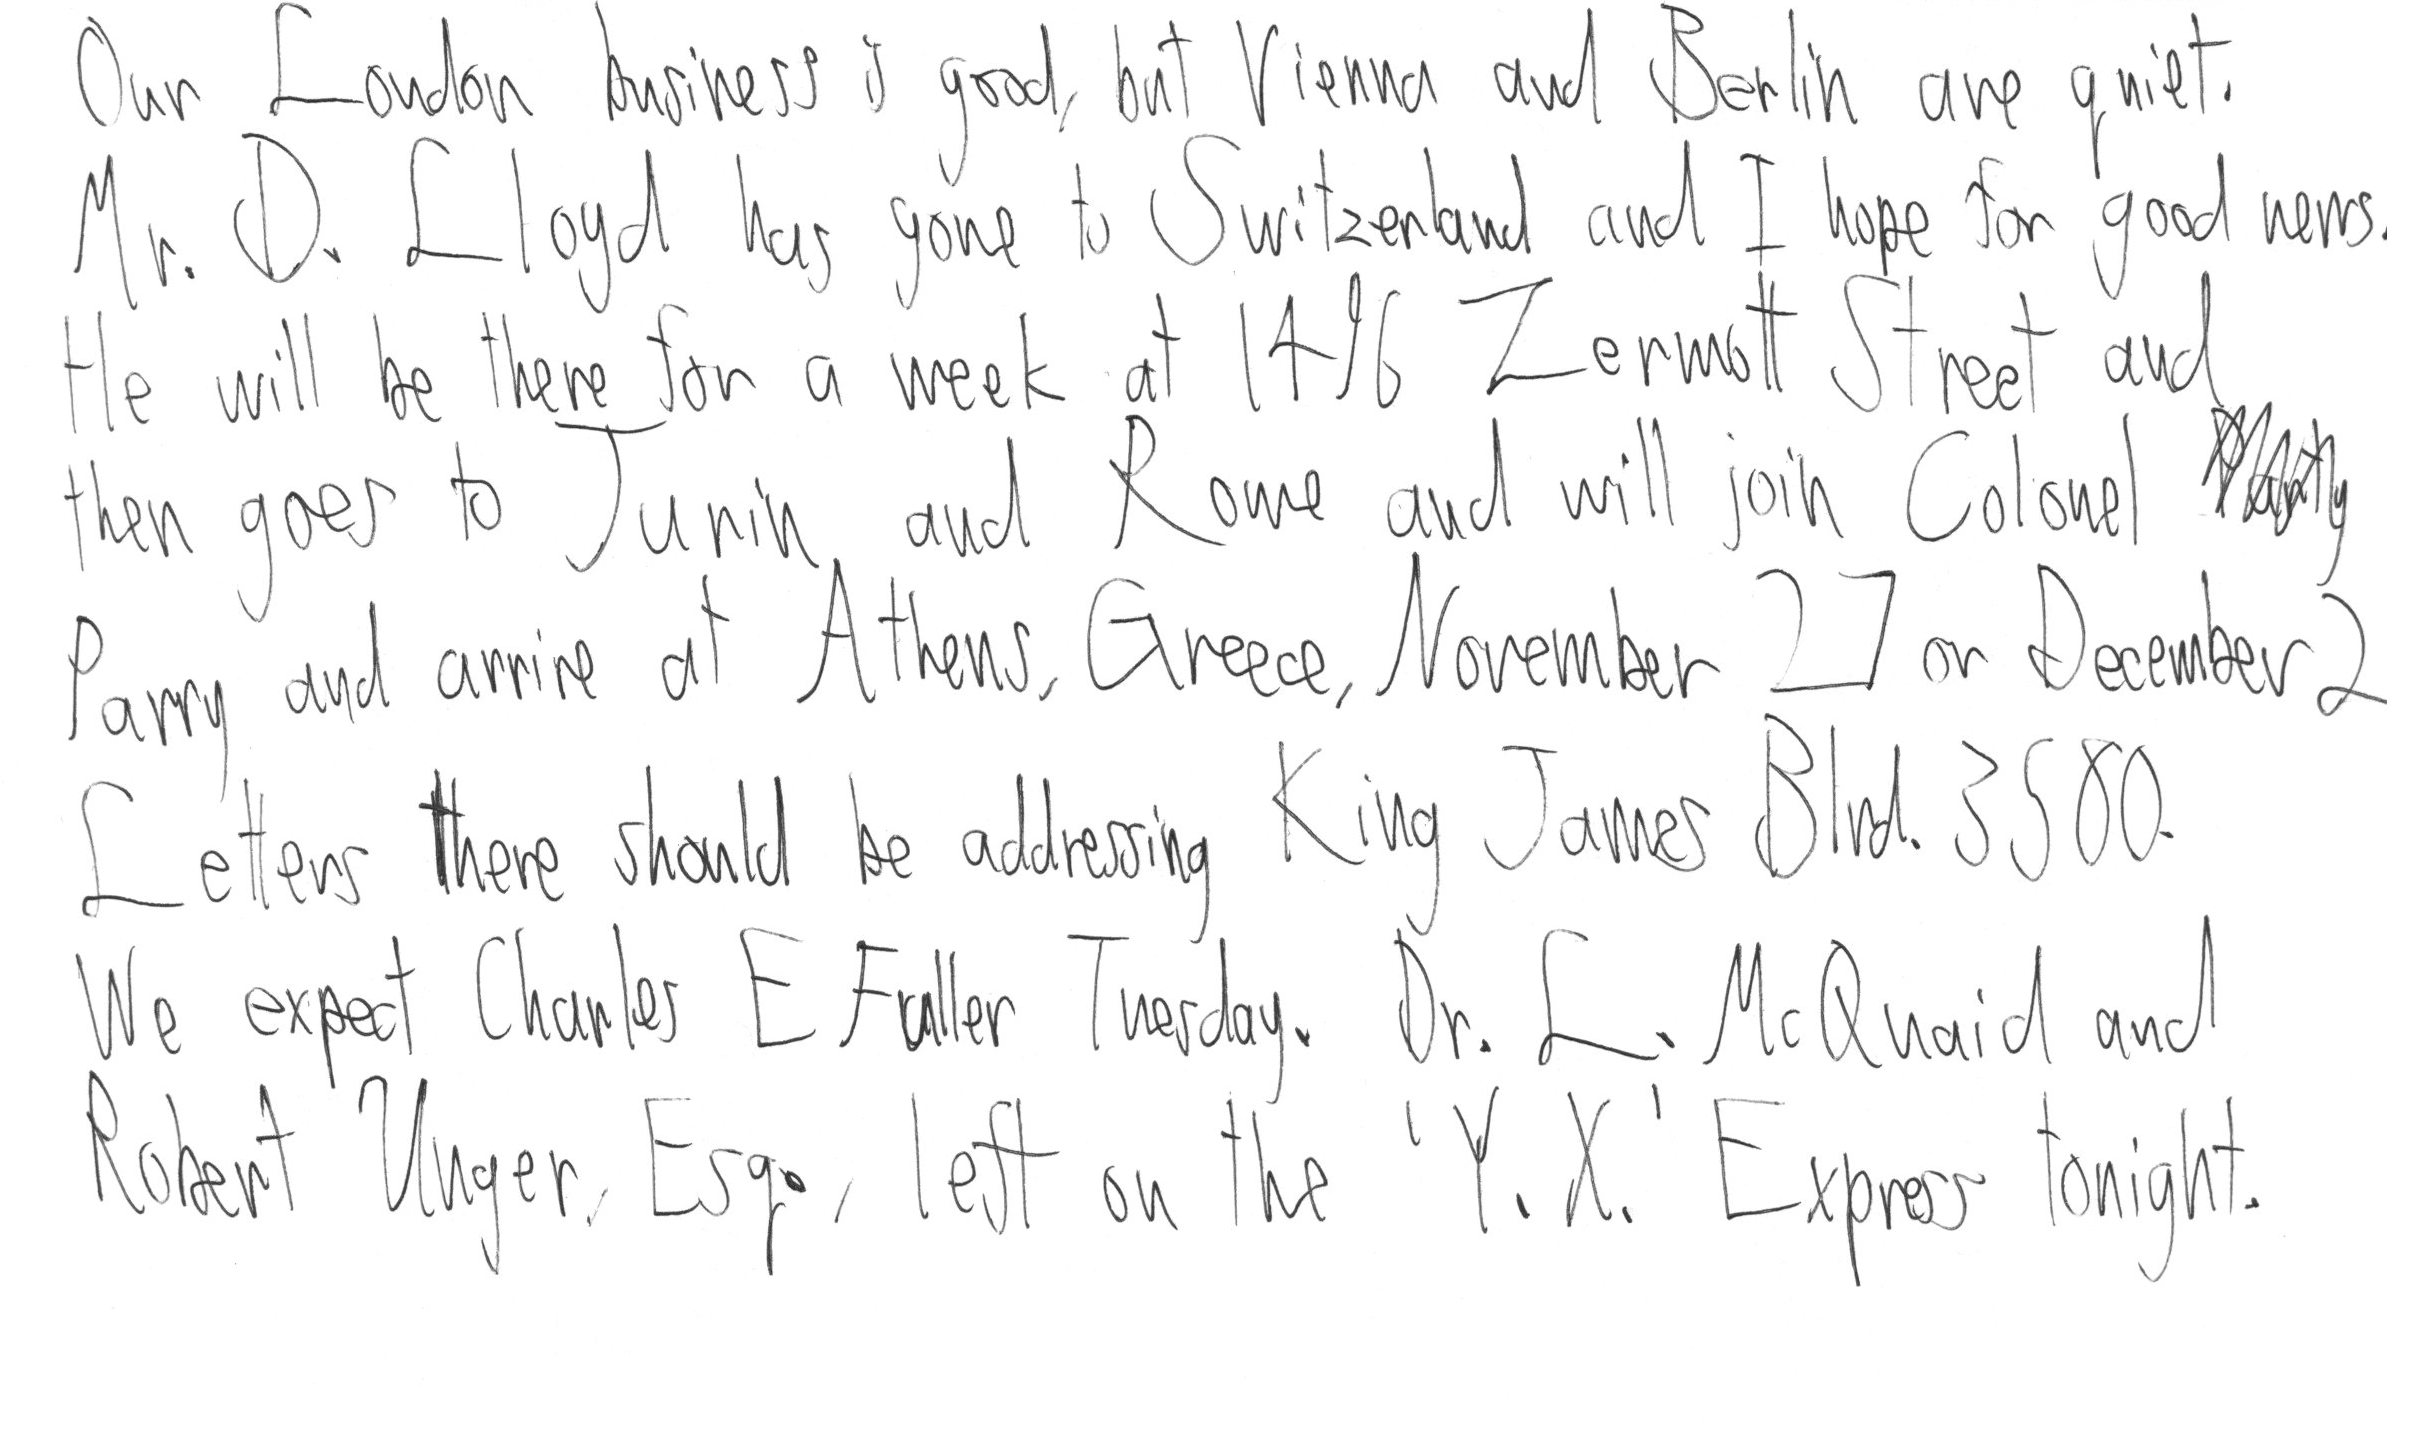 Our London business is good, but Vienna and Berlin are quiet.
Mr. D. Lloyd has gone to Switzerland and I hope for good news.
He will be there for a week at 1496 Zermott Street and
then goes to Turin and Rome and will join Colonel
Parry and arrive at Athens, Greece, November 27 or December 2
Letters there should be addressing King James Blvd. 3580.
We expect Charles E Fuller Tuesday. Dr. L. McQuaid and
Robert Unger, Esq., left on the 'Y. X.' Express tonight.